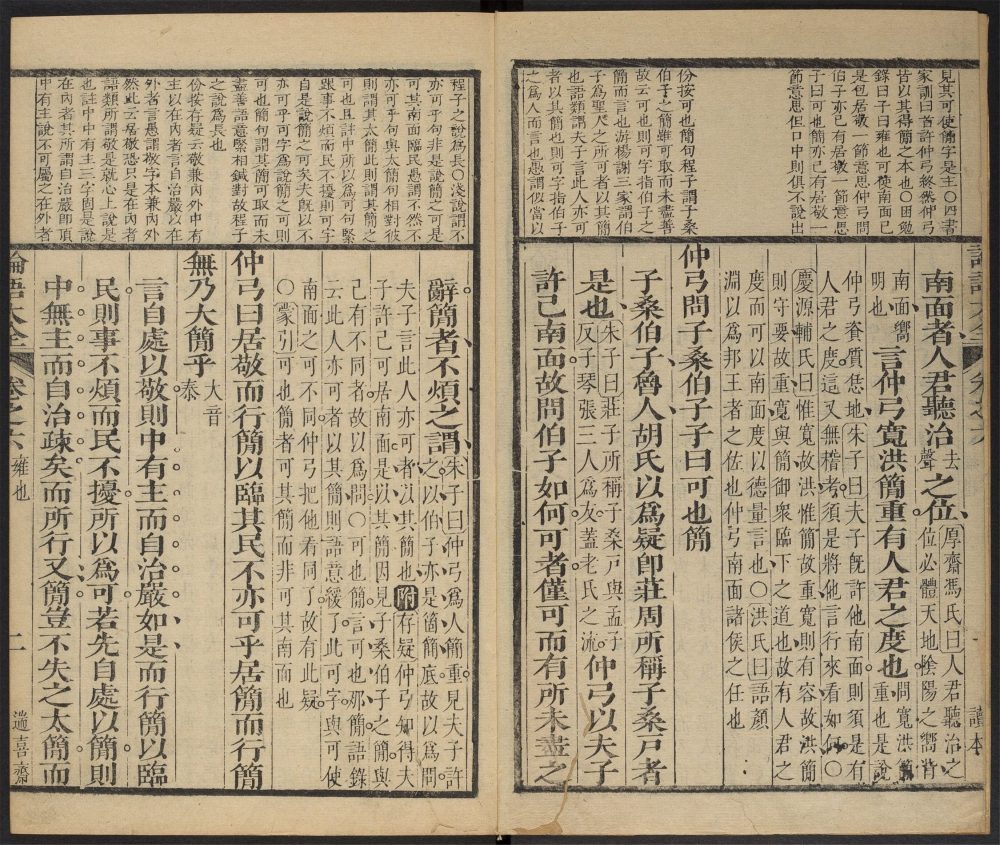 見其可使簡字是主○四書
家訓曰首許仲弓終然仲弓
皆以其得簡之本也○困勉
錄曰子曰雍也可使南面已
是包居敬一節意思仲弓問
伯子亦已有居敬一節意思
子曰可也簡亦已有居敬一
節意思但口中則俱不說出
份按可也簡句程子謂子桑
伯子之簡雖可取而未盡善
故云可也則可字指伯子之
簡而言也游楊謝三家謂伯
子爲聖人之所可者以其簡
也語類謂夫子言此人亦可
者以其簡也則可字指伯子
之爲人而言也愚謂似當以
南面者人君聽治去聲之位厚齋馮氏曰人君聽治之位必體天地陰陽之嚮背
南面嚮明也言仲弓寬洪簡重有人君之度也問寬洪簡重也是說
仲弓資質恁地朱子曰夫子旣許他南面則須是有
人君之度這又無稽考須是將他言行來看如何○
慶源輔氏曰惟寬故洪惟簡故重寬則有容故洪簡
則守要故重寬與簡御衆臨下之道也故有人君之
度而可以南面度以德量言也○洪氏曰語顏
淵以爲邦王者之佐也仲弓南面諸侯之任也
仲弓問子桑伯子子曰可也簡
子桑伯子魯人胡氏以爲疑卽莊周所稱子桑戶者
是也朱子曰莊子所稱子桑戶與孟子反子琴張三人爲友蓋老氏之流仲弓以夫子
許己南面故問伯子如何可者僅可而有所未盡之
讀本
程子之說爲長○淺說謂不
亦可乎句非是說簡之可是
可其南面臨民愚謂不然不
亦可乎句與太簡句相對彼
則謂其太簡此則謂其簡之
可也且註中所以爲可句緊
跟事不煩而民不擾則可字
自是說簡之可矣夫旣以不
亦可乎可字爲說簡之可則
可也簡句謂其簡可取而未
盡善語意緊相鍼對故程子
之說爲長也
份按存疑云敬兼內外中有
主以在內者言自治嚴以在
外者言愚謂敬字本兼內外
然此云居敬恐只是在內者
語類所謂敬是就心上說是
也註中中有主三字固是說
在內者其所謂自治嚴即頂
中有主說不可屬之在外者
辭簡者不煩之謂朱子曰仲弓爲人簡重見夫子許之以伯子亦是箇簡底故以爲問
夫子言此人亦可者以其簡也附存疑仲弓知得夫
子許己可居南面是以其簡因見子桑伯子之簡與
己有不同者故以爲問○可也簡言可也那簡語錄
云此人亦可者以其簡則語意緩了此可字與可使
南面之可不同仲弓把他看同了故有此疑
○蒙引可也簡者可其簡而非可其南面也
仲弓曰居敬而行簡以臨其民不亦可乎居簡而行簡
無乃大簡乎大音泰
言自處以敬則中有主而自治嚴如是而行簡以臨
民則事不煩而民不擾所以爲可若先自處以簡則
中無主而自治疎矣而所行又簡豈不失之太簡而
論語大全 卷之六 雍也 二 遄喜齋